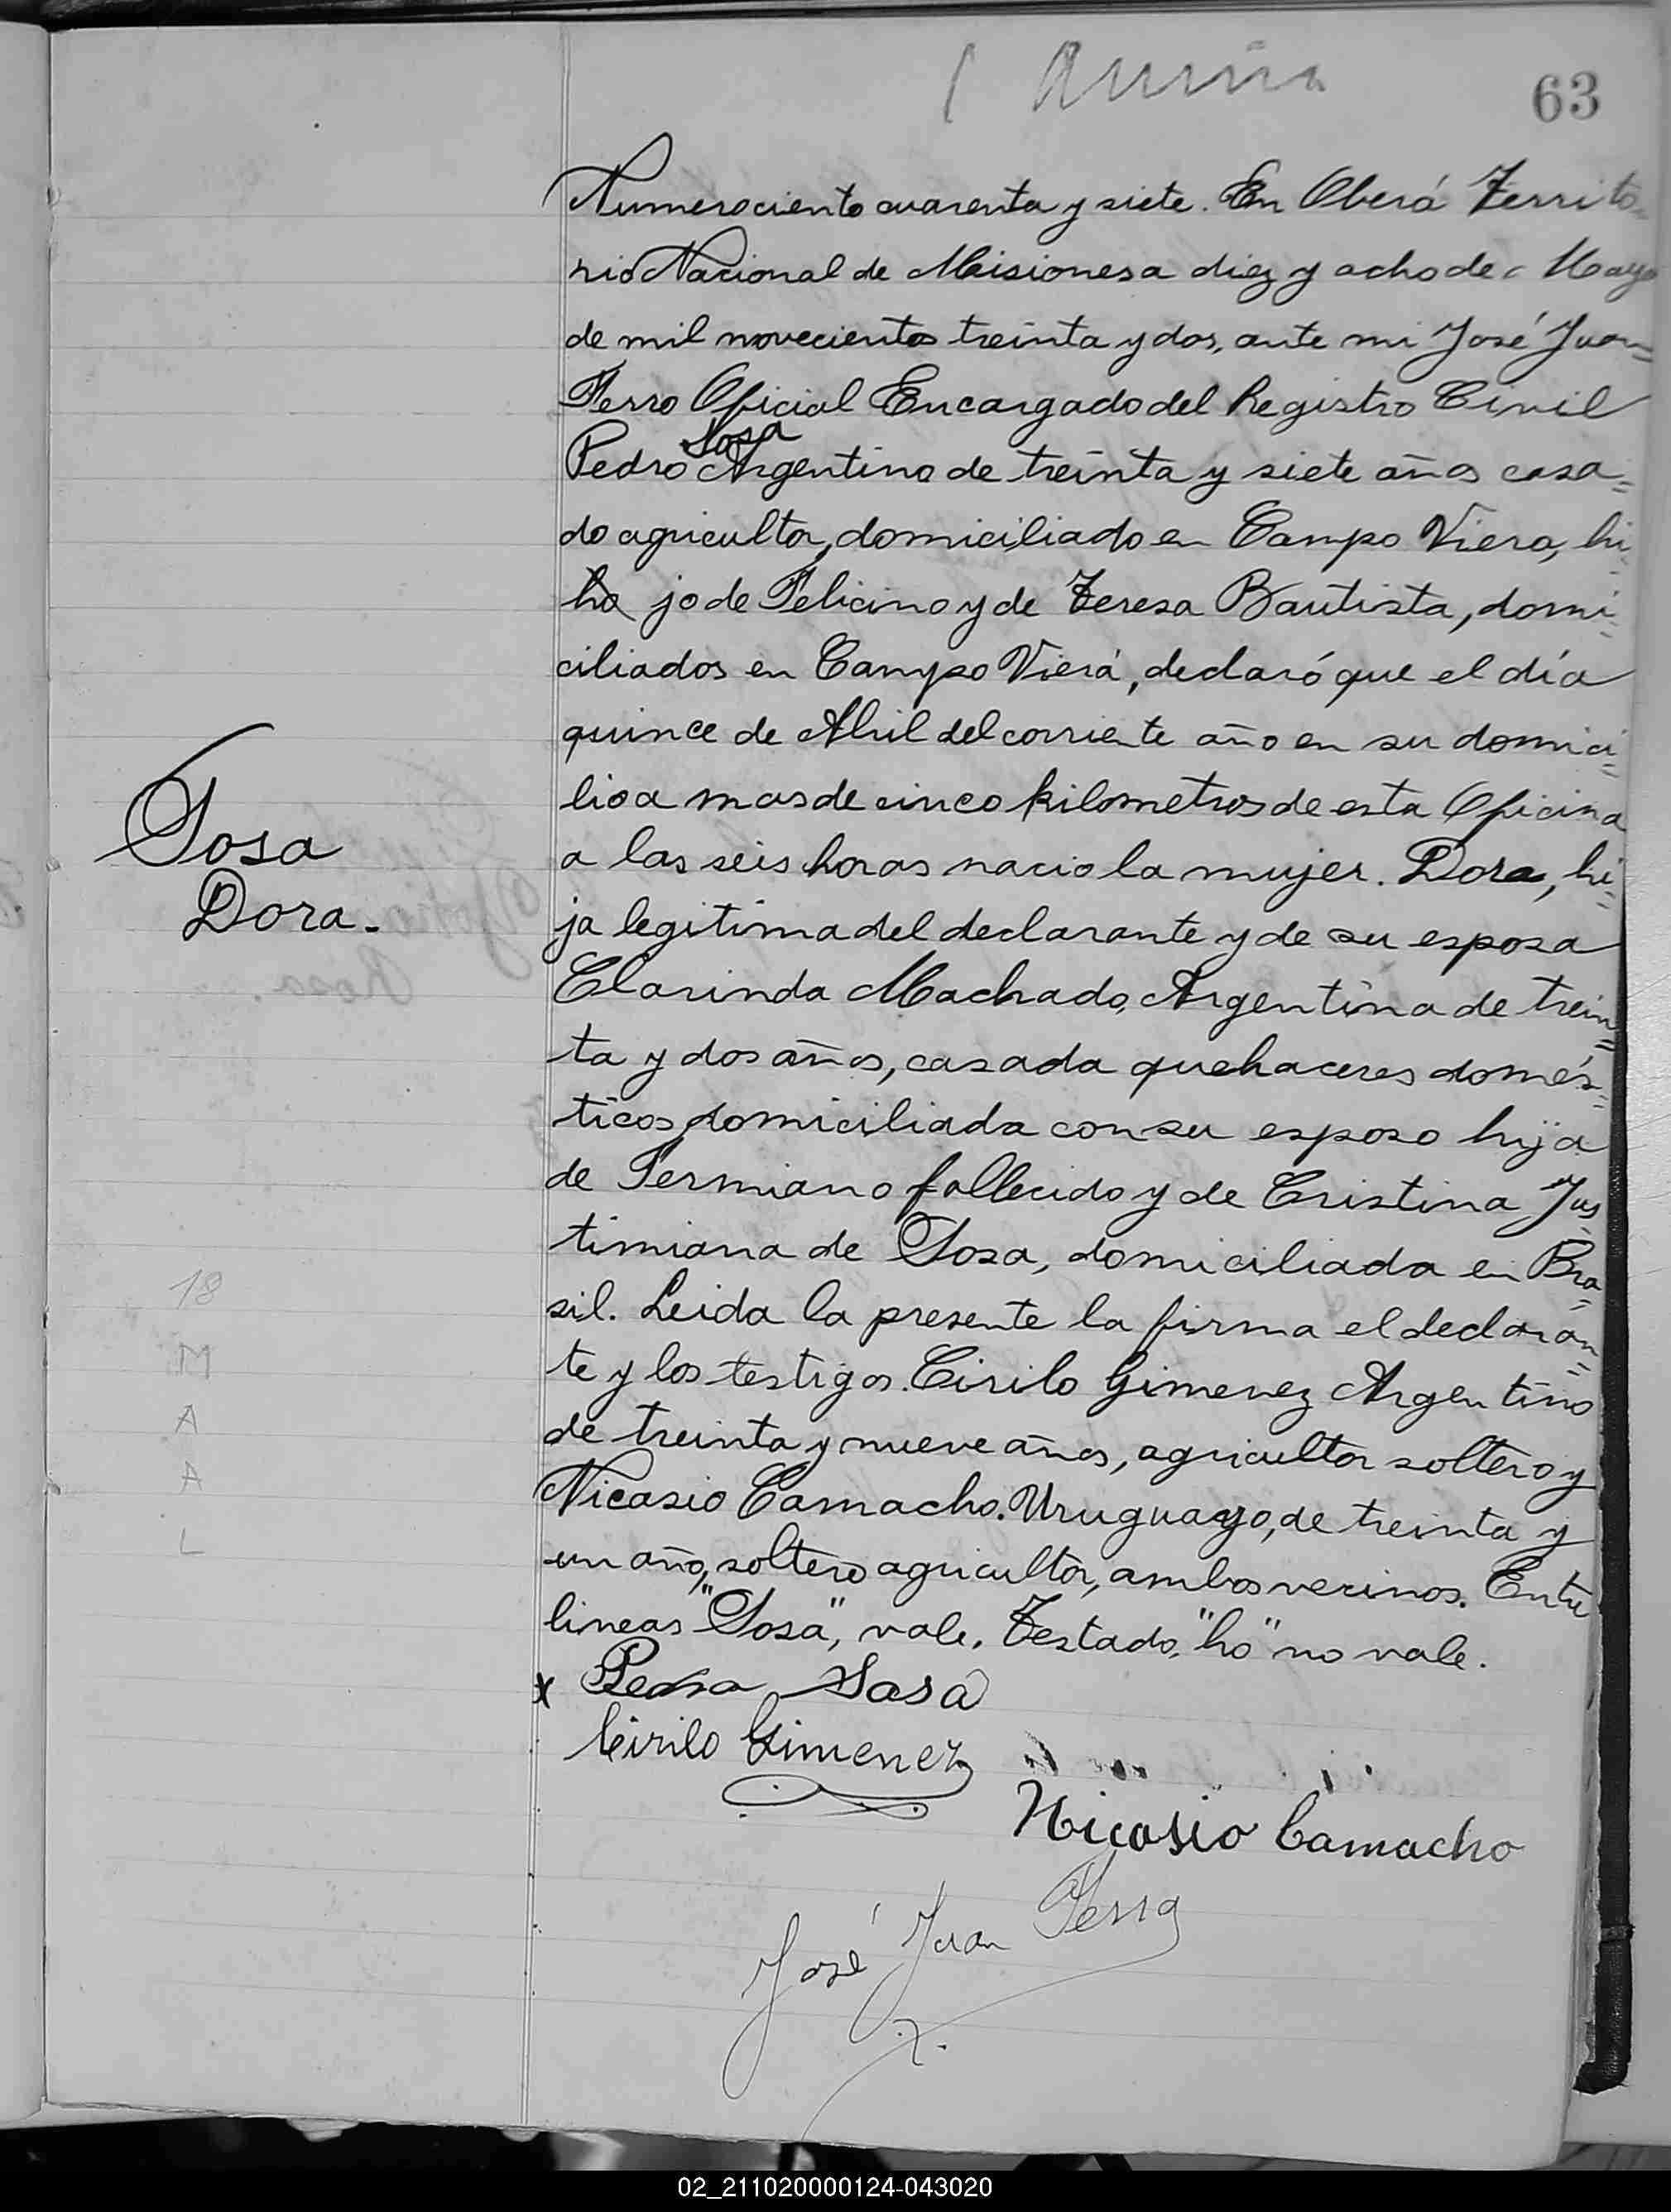 63
Numero ciento cuarenta y siete. En Oberá Territo=
rio Nacional de Misiones a diez y ocho de Mayo
de mil novecientos treinta y dos, ante mi José Juan=
Ferro Oficial Encargado del Registro Civil
Sosa
Pedro Argentino de treinta y siete años casa=
do agricultor, domiciliado en Campo Viera, hi=
ho jo de Felicino y de Teresa Bautista, domi=
ciliados en Campo Vierá, declaró que el día
quince de Abril del corriente año en su domici=
lio a mas de cinco kilometros de esta Oficina
Sosa
a las seis horas nacio la mujer. Dora, hi=
Dora.-
ja legitima del declarante y de su esposa
Clarinda Machado, Argentina de trein=
ta y dos años, casada quehaceres domés=
ticos, domiciliada con su esposo hija
de Fermiano fallecido y de Cristina Jus=
timiana de Sosa, domiciliada en Bra=
18
sil. Leida la presente la firma el declaran=
M
te y los testigos. Cirilo Gimenez Argentino
A
de treinta y nueve años, agricultor soltero y
A
Nicasio Camacho. Uruguayo, de treinta y
L
un año, soltero agricultor, ambos vecinos. Entre
lineas "Sosa", vale. Testado, "ho" no vale.
x Pedro Sosa
Cirilo Gimenez
Nicasio Camacho
José Juan Ferro
02_211020000124-043020